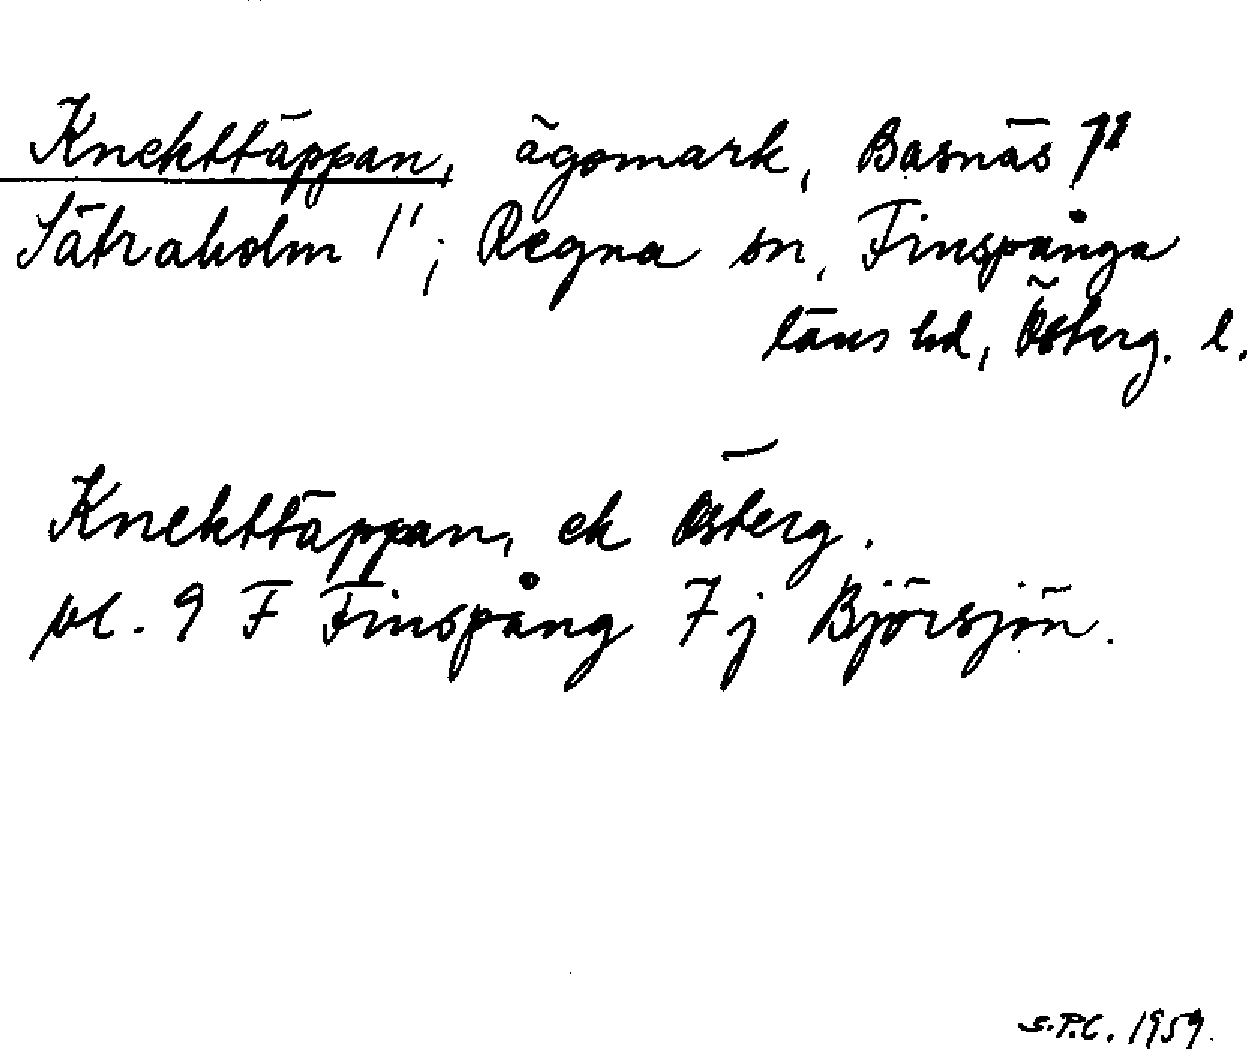 Knekttäppan, ägomark, Basnäs 1⁹
Sätraholm 1¹; Regna sn, Finspånga
läns hd, Österg. l.
Knekttäppan, ek Österg.
bl. 9 F Finspång 7 j Björsjön.
S.P.C. 1959.